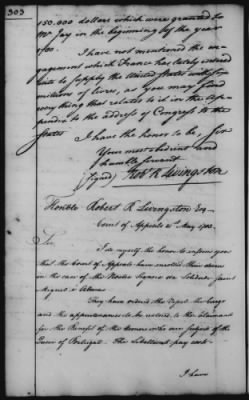 303
150.000 dollars which were granted to
Mr Jay in the beginning of the year
1780.
I have not mentioned the en-
gagement which France has lately entered
into to supply the United States with six
millions of livres, as you may find
every thing that relates to it in the Appe-
ndix to the address of Congress to the
States
I have the honor to be, Sir
Your most obedient and
humble servant
(signed) Robt R Livingston
Honble Robert R Livingston Esq
Court of Appeals May 1783
Sir,
I do myself the honor to inform you
that the Court of Appeals have
in the case of the Nostra Signora da Solidade Saint
Miguel e Almas.
They have ordered the Vessel the Cargo
and the appurtenances to be restored, to the Claimant
for the Benefit of the owners who are subjects of the
Queen of Portugal. The Libellant pay costs
I have